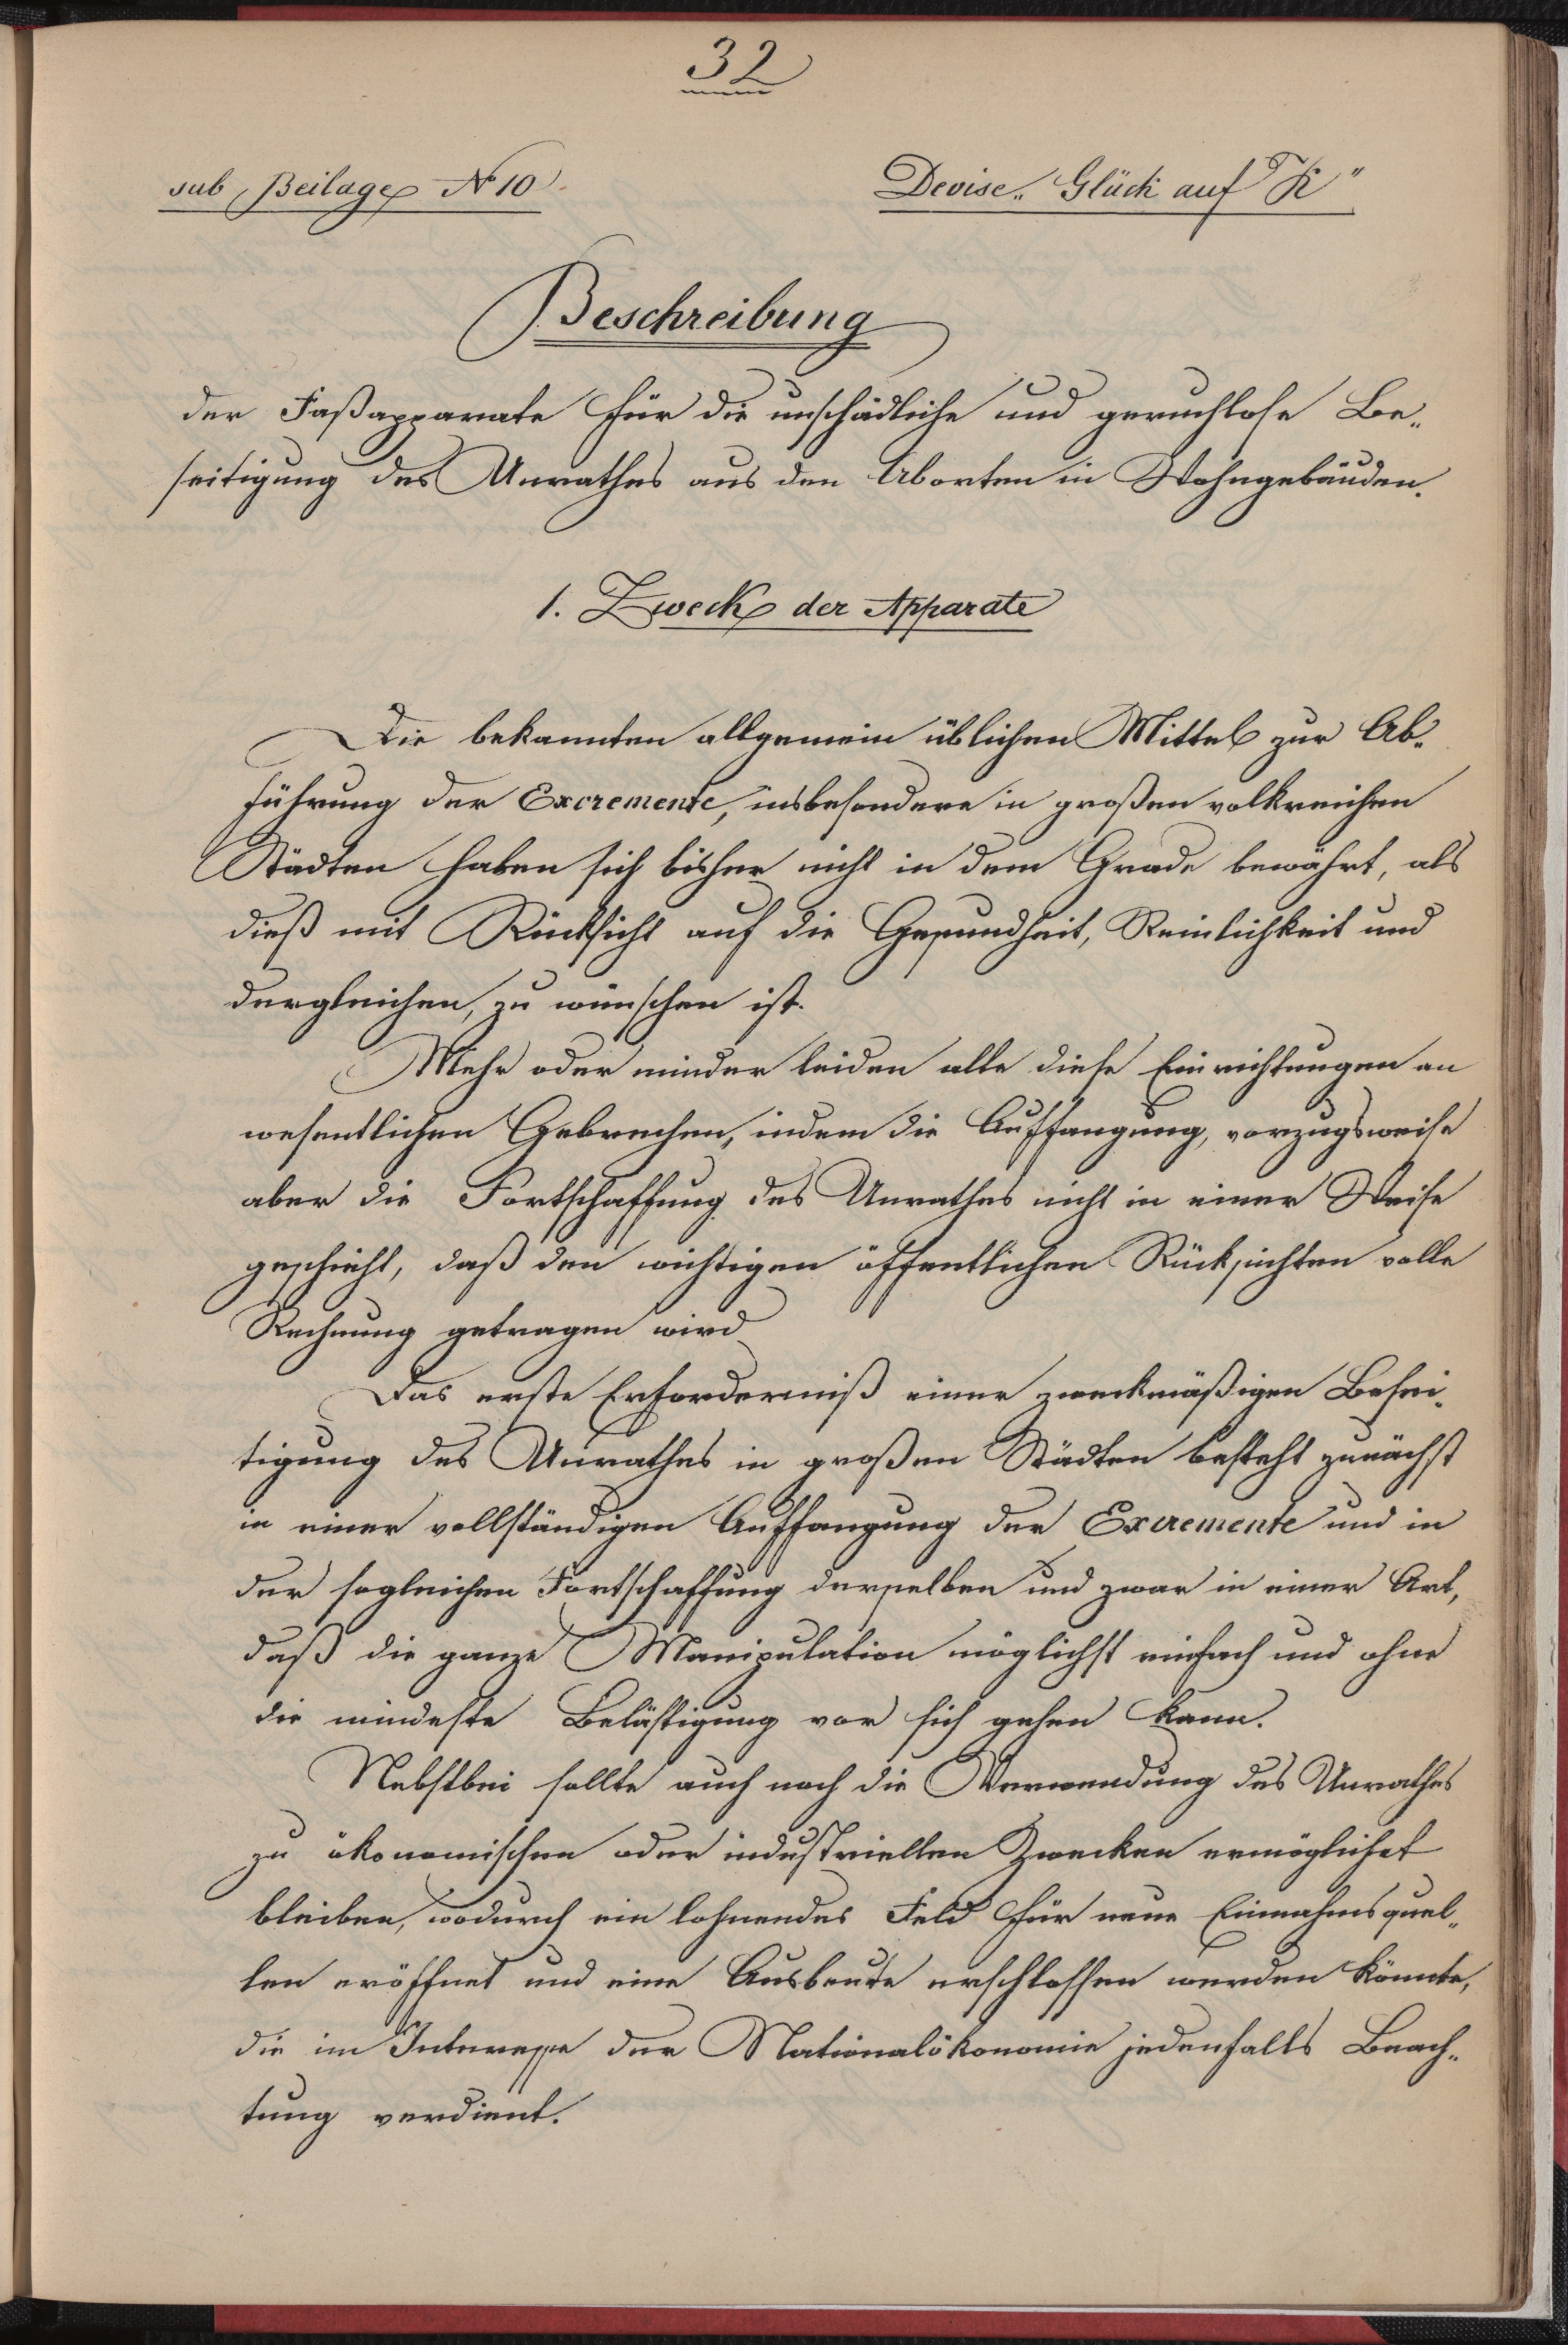 32
sub Beilage No 10.
Devise „Glück auf K"
Beschreibung
der Faßapparate für die unschädliche und geruchlose Be„
seitigung des Unrathes aus den Aborten in Wohngebäuden.
1. Zweck der Apparate
Die bekannten allgemein üblichen Mittel zur Ab„
führung der Excremente, insbesondere in großen volkreichen
Städten haben sich bisher nicht in dem Grade bewährt, als
dieß mit Rücksicht auf die Gesundheit, Reinlichkeit und
dergleichen, zu wünschen ist.
Mehr oder minder leiden alle diese Einrichtungen an
wesentlichen Gebrechen, indem die Auffangung, vorzugsweise
aber die Fortschaffung des Unrathes nicht in einer Weise
geschieht, daß den wichtigen öffentlichen Rücksichten volle
Rechnung getragen wird
Das erste Erforderniß einer zweckmäßigen Besei„
tigung des Unrathes in großen Städten besteht zunächst
in einer vollständigen Auffangung der Excremente und in
der sogleichen Fortschaffung derselben und zwar in einer Art,
daß die ganze Manipulation möglichst einfach und ohne
die mindeste Belästigung vor sich gehen kann.
Nebstbei sollte auch noch die Verwendung des Unrathes
zu ökonomischen oder industriellen Zwecken ermöglichet
bleiben, wodurch ein lohnendes Feld für neue Einnahmsquel„
len eröffnet und eine Ausbeute erschlossen werden könnte,
die im Interesse der Nationalökonomie jedenfalls Beach„
tung verdient.